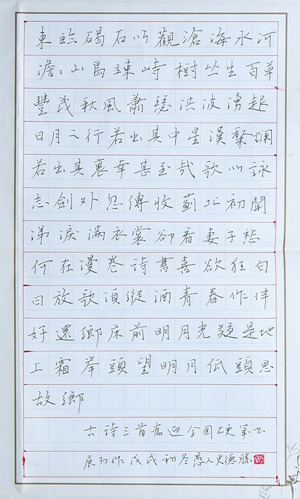 東臨碣石以觀滄海水河
澹〻山島竦峙樹丛生百草
豐茂秋風蕭瑟洪波湧起
日月之行若出其中星漢粲爛
若出其裏幸甚至哉歌以詠
志劍外忽傳收薊北初聞
涕淚滿衣裳卻看妻子愁
何在漫卷詩書喜欲狂白
日放歌須縱酒青春作伴
好還鄉床前明月光疑是地
上霜舉頭望明月低頭思
故鄉
古詩三首為迎全國硬筆书
展而作戊戌初冬人史德勝